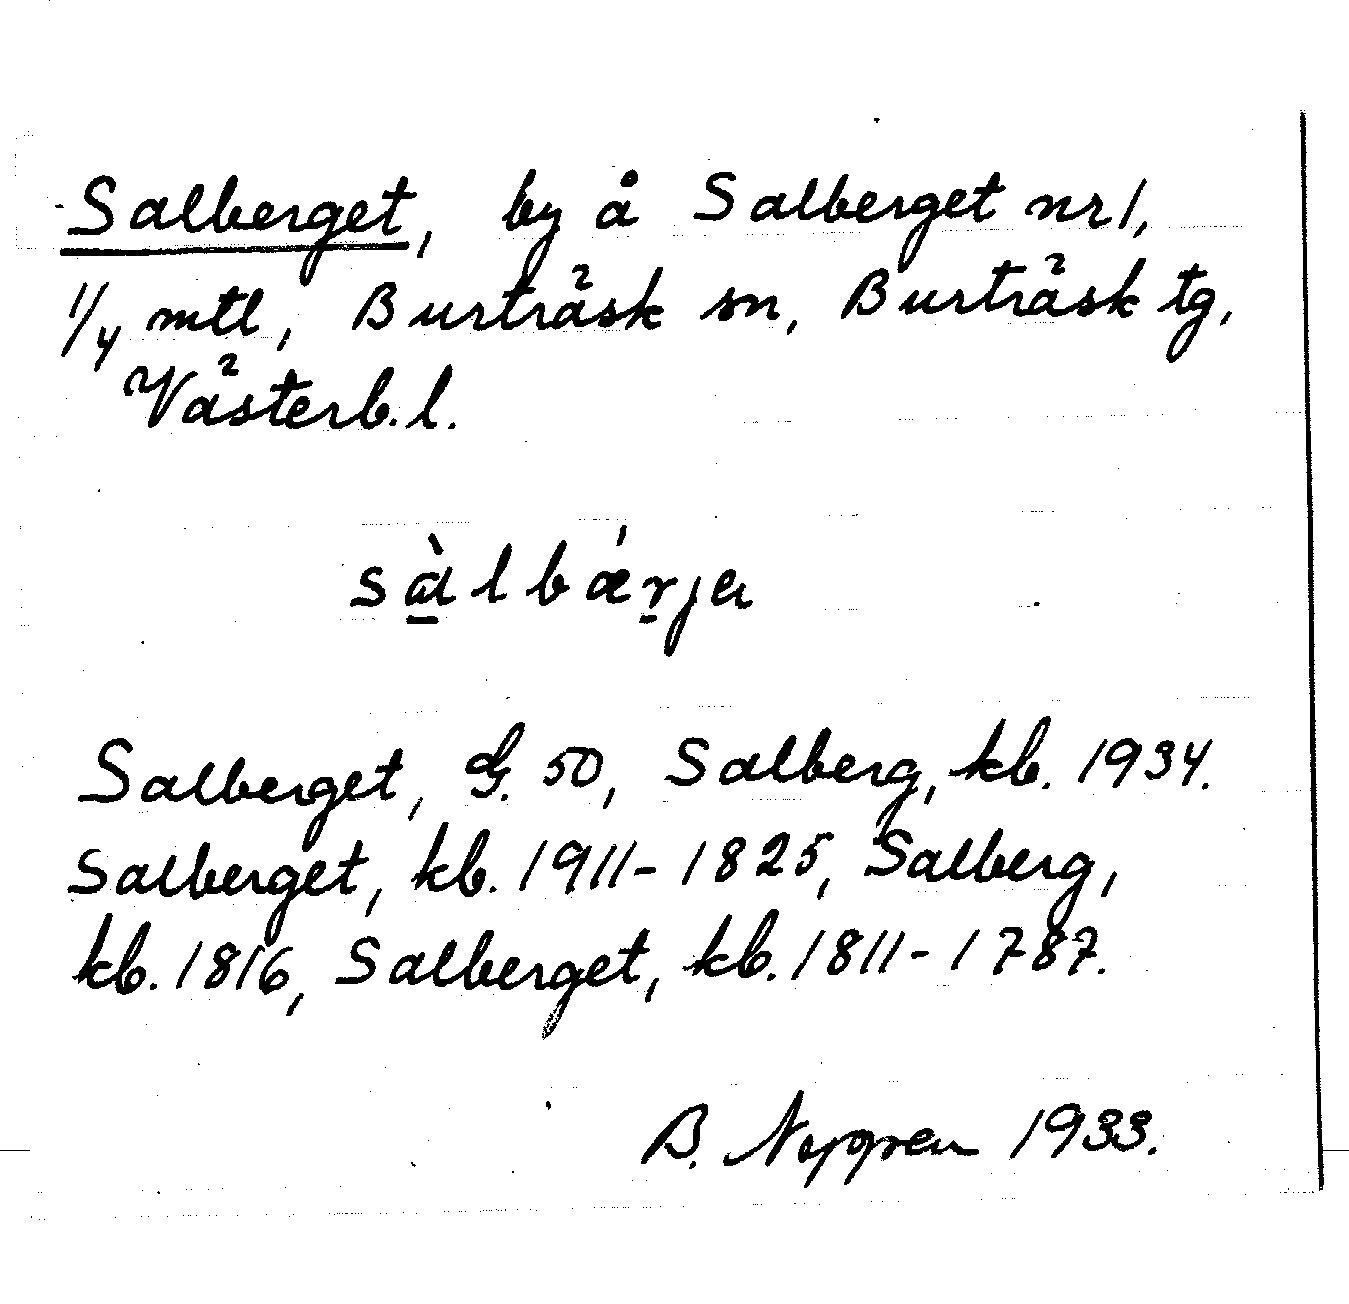 Salberget, by å Salberget nr 1,
1/4 mtl, Burträsk sn, Burträsk tg,
Västerb. l.
sàlbǽrja
Salberget, G. 50, Salberg, kb. 1934.
Salberget, kb. 1911-1825, Salberg,
kb. 1816, Salberget, kb. 1811-1787.
B. Nygren 1933.